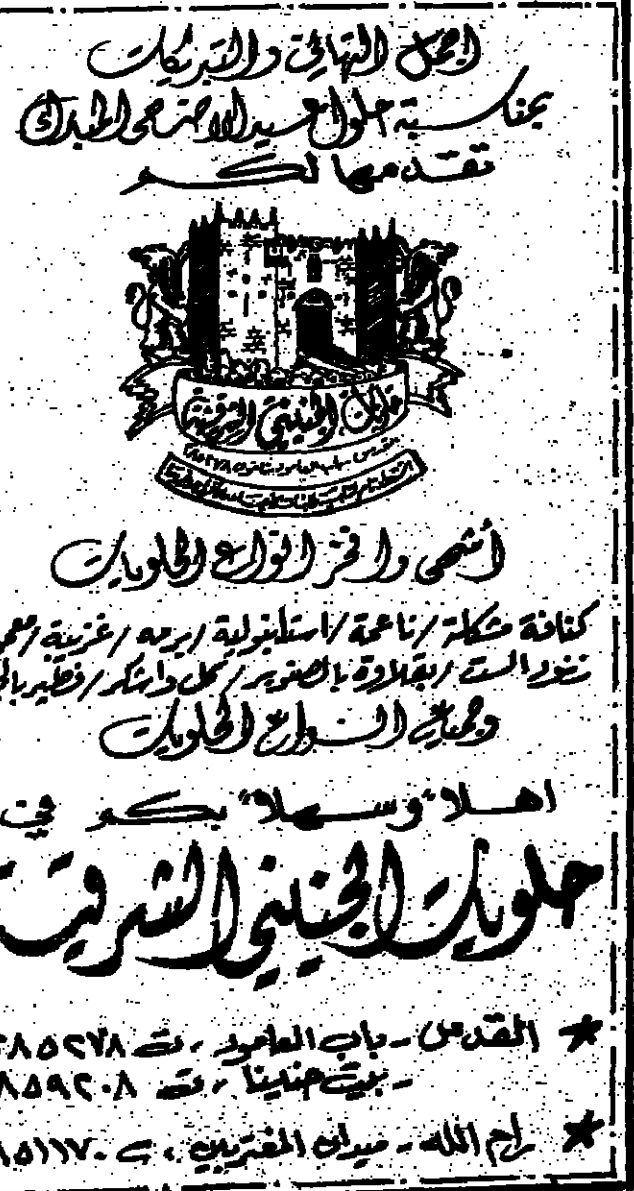 اجمل التهاني والتبريكات
بمناسبة حلول عيد الاضحى المبارك
تقدمها لكم
حلويات الجنيني الشرقية
القدس - باب العامود تلفون ٢٨٥٢٧٨
أشهى وافخر انواع الحلويات
كنافة مشكلة / ناعمة / استانبولية / برمه / غريبة /
زنود الست / بقلاوة بالصنوبر / كل واشكر / فطير
وجميع انواع الحلويات
اهلا" وسهلا" بكم في
حلويات الجنيني الشرقية
* القدس - باب العامود ، ت ٢٨٥٢٧٨
- بيت حنينا ، ت ٨٥٩٢٠٨
* رام الله - ميدان المغتربين ، ت ٨٥١١٧٠